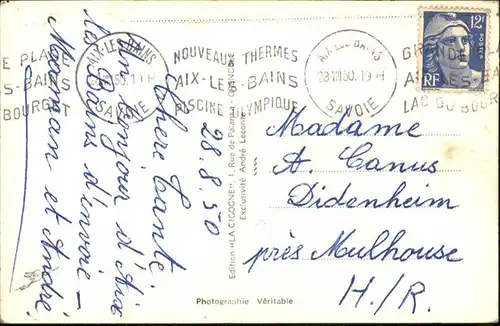 28.8.50
Chère Tante.
Un Bonjour d'Aix
les Bains d'envoie –
Maman et André
Madame
A. Canus
Didenheim
près Mulhouse
H./R.
E PLAGE
S-BAINS
BOURGET
AIX-LES-BAINS
SAVOIE
NOUVEAUX THERMES
AIX-LES-BAINS
PISCINE OLYMPIQUE
AIX-LES-BAINS
28 VIII 50. 19 H
SAVOIE
GRANDE
AI LES-BA
LAC DU BOUR
12F
POSTES
RF
Edition "LA CIGOGNE", 1, Rue de Palanka - GRENOBLE
Exclusivité André Leconte
Photographie Véritable